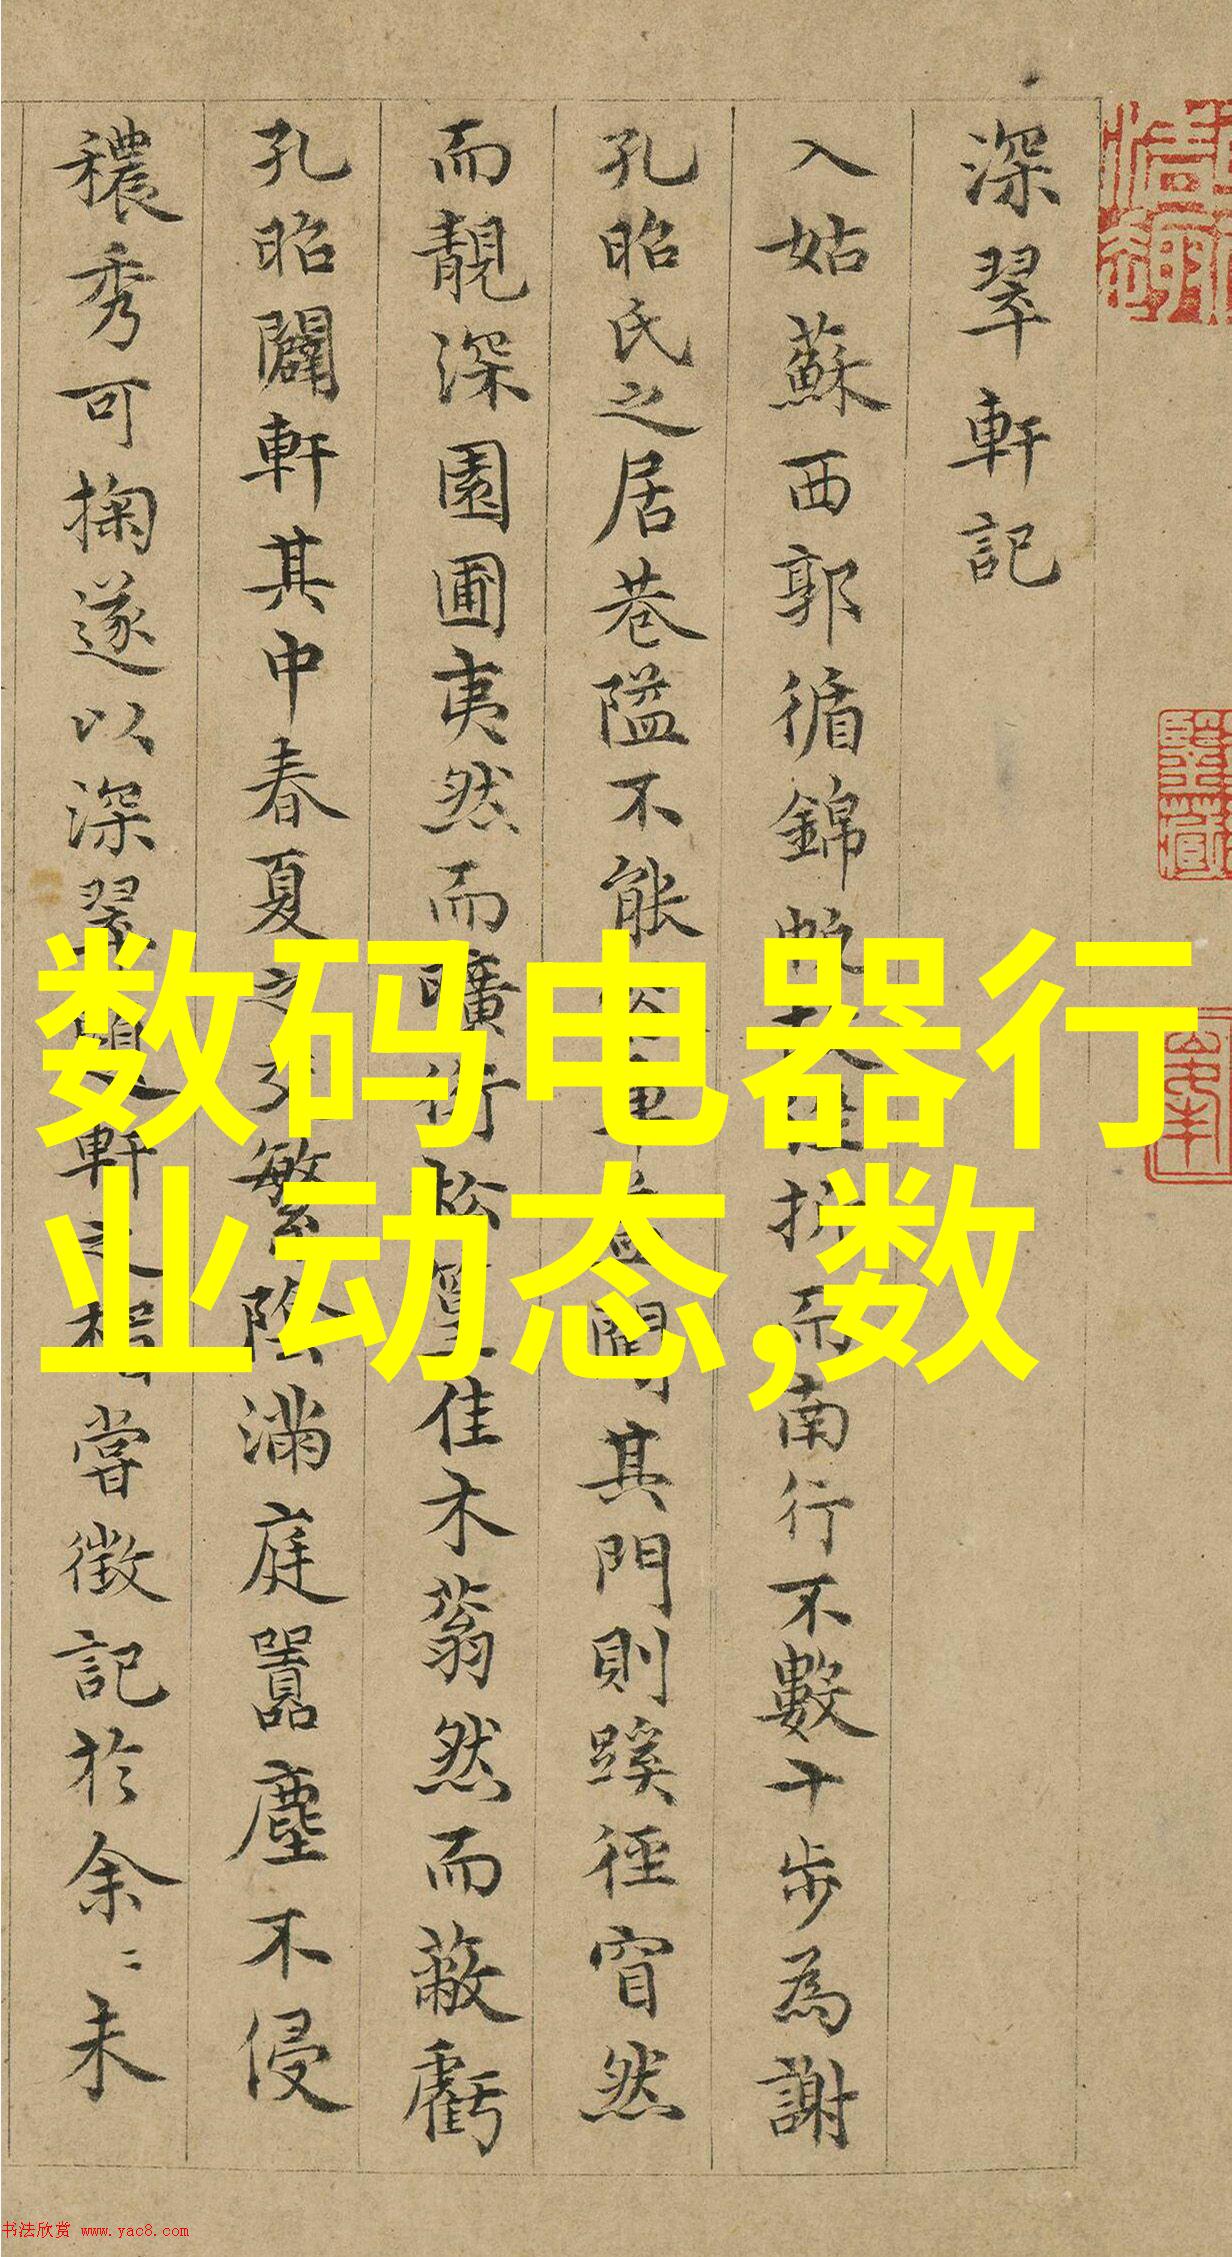 深翠軒記
入姑蘇西郭循錦帆折而南行不數十步為謝
孔昭氏之居巷隘不能其門則蹊徑窅然
而靚深園圃夷然而曠衍松篁佳木蓊然而蔽虧
孔昭闢軒其中春夏之交繁陰滿庭囂塵不侵
穠秀可掬遂以深翠題軒之楣嘗徵記於余〻未
数码电器行
业动态,数
书法欣赏 www.yac8.com